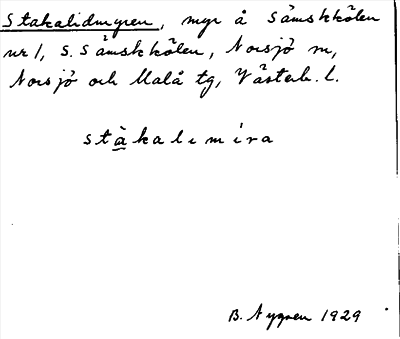 Stakalidmyren, myr å Sämskkölen
nr 1, S. Sämskkölen, Norsjö sn,
Norsjö och Malå tg, Västerb. l.
stàkalımíra
B. Nygren 1929